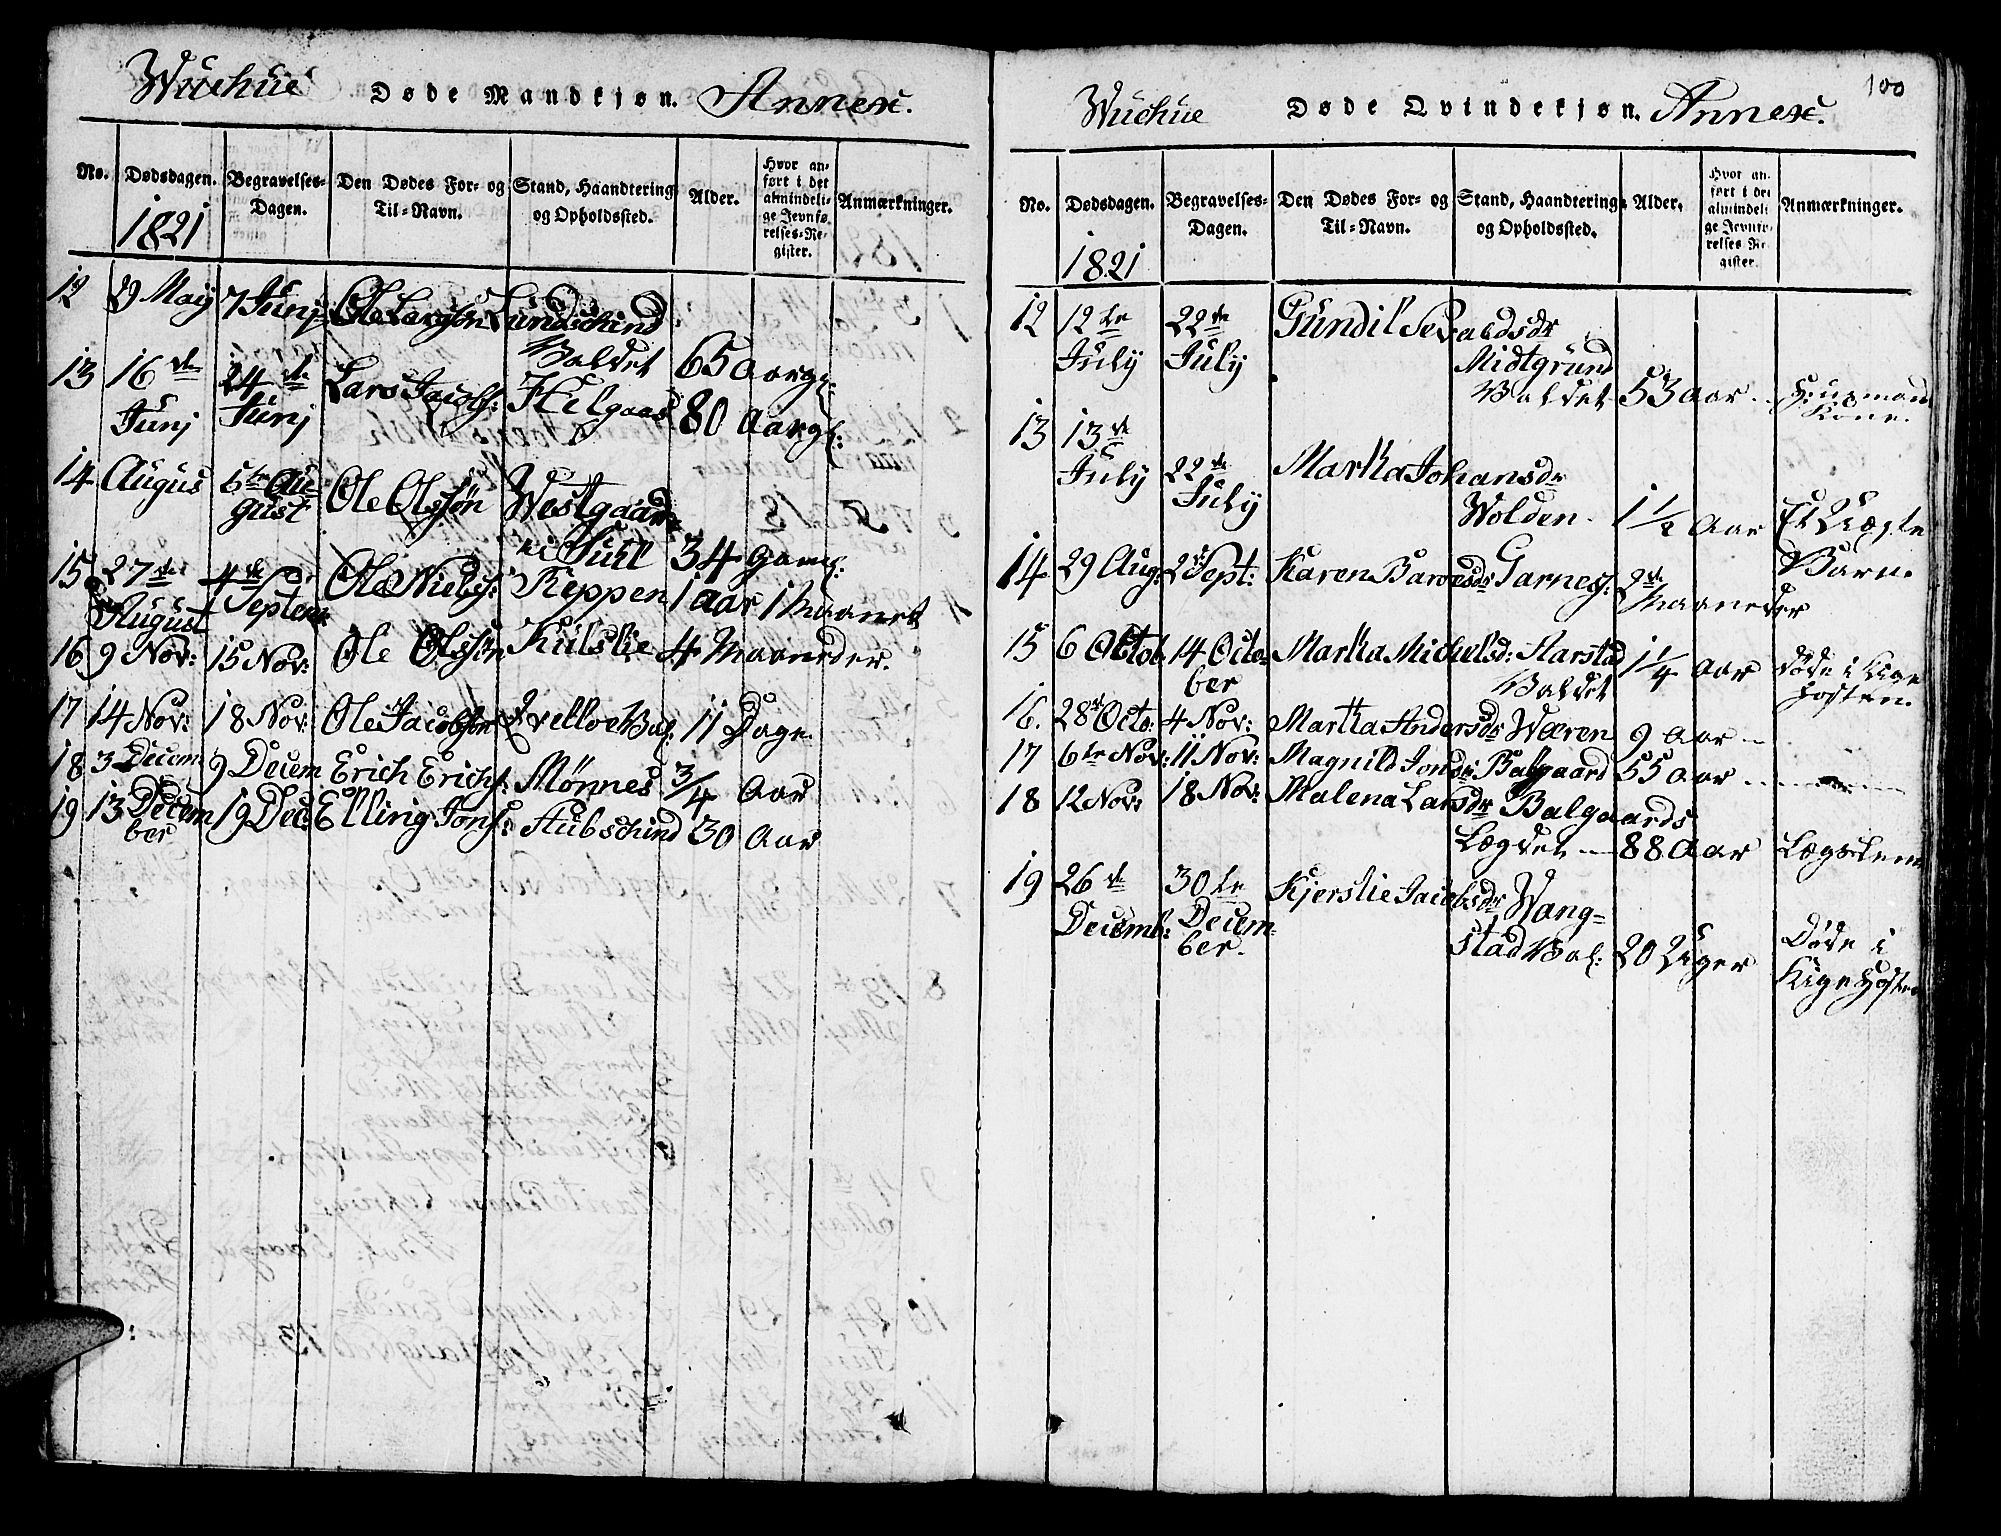 Wuchue Døde Mandkjøn. Annex.
No. Dødsdagen. Begravelses-Dagen. Den Dødes For- og Til-Navn. Stand, Haandtering og Opholdssted. Alder. Hvor anført i det almindelige Jevnførelses-Register. Anmærkninger.
1821
12 29 May 7 Junj Ole Larssøn Lundschind
Valdet 65 aarg:
13 16de Junj 24de Junj Lars Jacobs: Helgaas 80 Aarg:
14 Augus 5te August Ole Olssøn Westgaard
i Suul 34 gaml:
15 27de August 4de Septem Ole Niels: Reppen 1 aar 1 Maanet
16 9 Nov: 15 Nov: Ole Olssøn Kulslie 4 Maaneder.
17 14 Nov: 18 Nov: Ole Jacobsøn Val: 11 Dage
18 3 Decem 9 Decem Erich Erichs: Mønnes 3/4 Aar
19 13 December 19 Dec: Elling Jons: Aubschind 30 Aar
Wuchue Døde Qvindekjøn. Annex. 100
No. Dødsdagen. Begravelses-Dagen. Den Dødes For- og Til-Navn. Stand, Haandtering og Opholdssted. Alder. Hvor anført i det almindelige Jevnførelses-Register. Anmærkninger.
1821
12 12te July 22de July Gundil Sevaldsdr
Midtgrund
Valdet 53 aar Huusmands Kone.
13 13de July 22de July Martha Johansdr
Wolden 1 1/2 Aar Et Uægte Barn.
14 29 Aug: 2 Sept: Karen Baroesdr Garnes: 2de Maaneder
15 6 Octob 14 October Martha Michelsd: Harstad
Valdet 1 1/4 Aar døde i Kige hosten.
16. 28de Octo: 4 Nov: Martha Andersdr Wæren 9 Aar
17 6te Nov: 11 Nov: Magnild Jonsdr Balgaard 55 Aar
18 12 Nov: 18 Nov: Malena Larsdr Balgaards
Lægdet 88 Aar Lægslem
19 26de Decemb: 30te December. Kjerstie Jacobsdr Wang=
stad Val: 20 Uger Døde i Kige Hosten